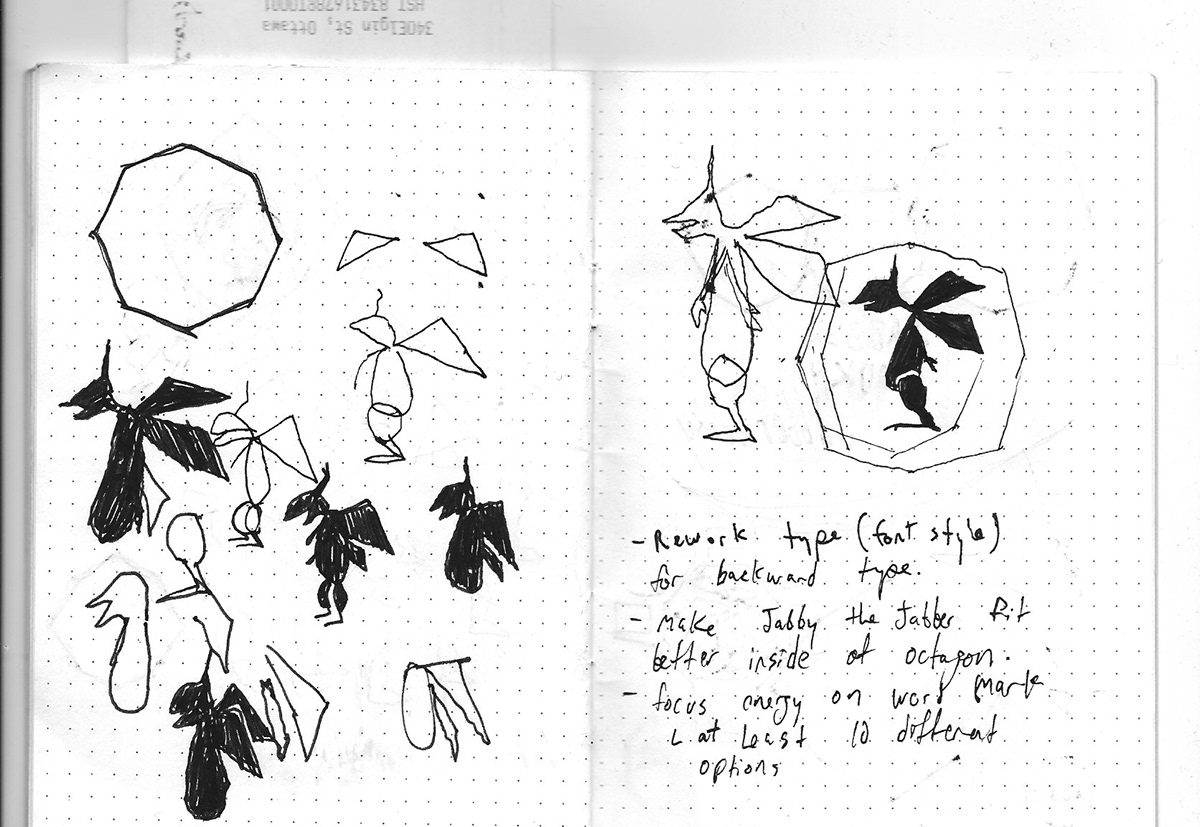 340Elgin St, Ottawa
HST 834316788RT0001
- Rework type (font style)
for backward type.
- Make Jabby the Jabber Fit
better inside of octagon.
- focus energy on word mark
L at least 10 different
options